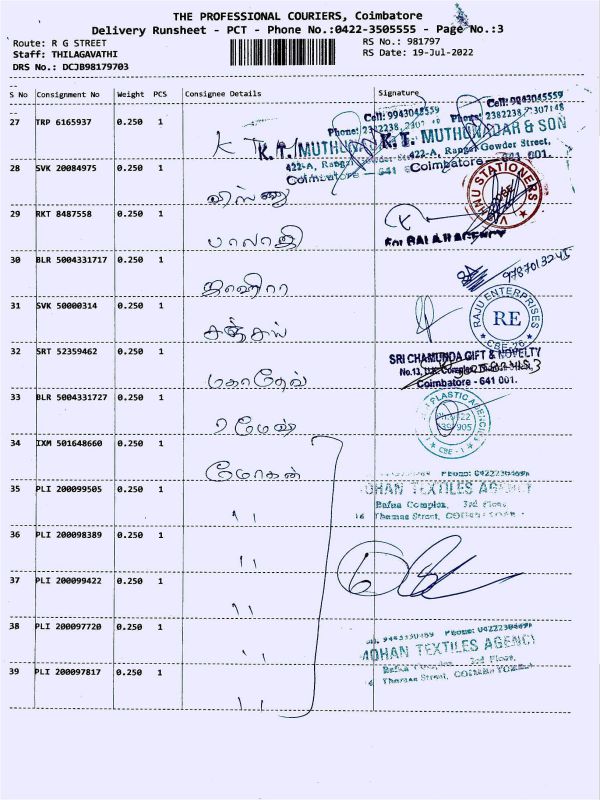 THE PROFESSIONAL COURIERS, Coimbatore
Delivery Runsheet - PCT - Phone No.:0422-3505555 - Page No.:3
Route: R G STREET
RS No.: 981797
Staff: THILAGAVATHI
RS Date: 19-Jul-2022
DRS No.: DCJB98179703
S No Consignment No Weight PCS Consignee Details Signature
27 TRP 6165937 0.250 1
Cell: 9943045559
Cell: 9943045559
K. T. MUTHU
K.T. MUTHUNADAR & SON
422-A, Rangai Gowder Street,
Coimbatore - 641 001.
28 SVK 20084975 0.250 1
விஸ்ணு
STATIONERS
29 RKT 8487558 0.250 1
பாலாஜி
For BALAJI AGENCY
30 BLR 5004331717 0.250 1
ஜாஹிரா
9787013245
31 SVK 50000314 0.250 1
சஞ்சய்
RAJU ENTERPRISES
RE
CBE
32 SRT 52359462 0.250 1
மகாதேவ்
SRI CHAMUNDA GIFT & NOVELTY
Coimbatore - 641 001.
33 BLR 5004331727 0.250 1
ரமேஷ்
PLASTIC AGENCIES
CBE - 1
34 IXM 501648660 0.250 1
மோகன்
35 PLI 200099505 0.250 1
"
OHAN TEXTILES AGENCY
Bafna Complex, 3rd Floor,
16 Thomas Street,
36 PLI 200098389 0.250 1
"
37 PLI 200099422 0.250 1
"
38 PLI 200097720 0.250 1
"
MOHAN TEXTILES AGENCY
3rd Floor,
Thomas Street,
39 PLI 200097817 0.250 1
"